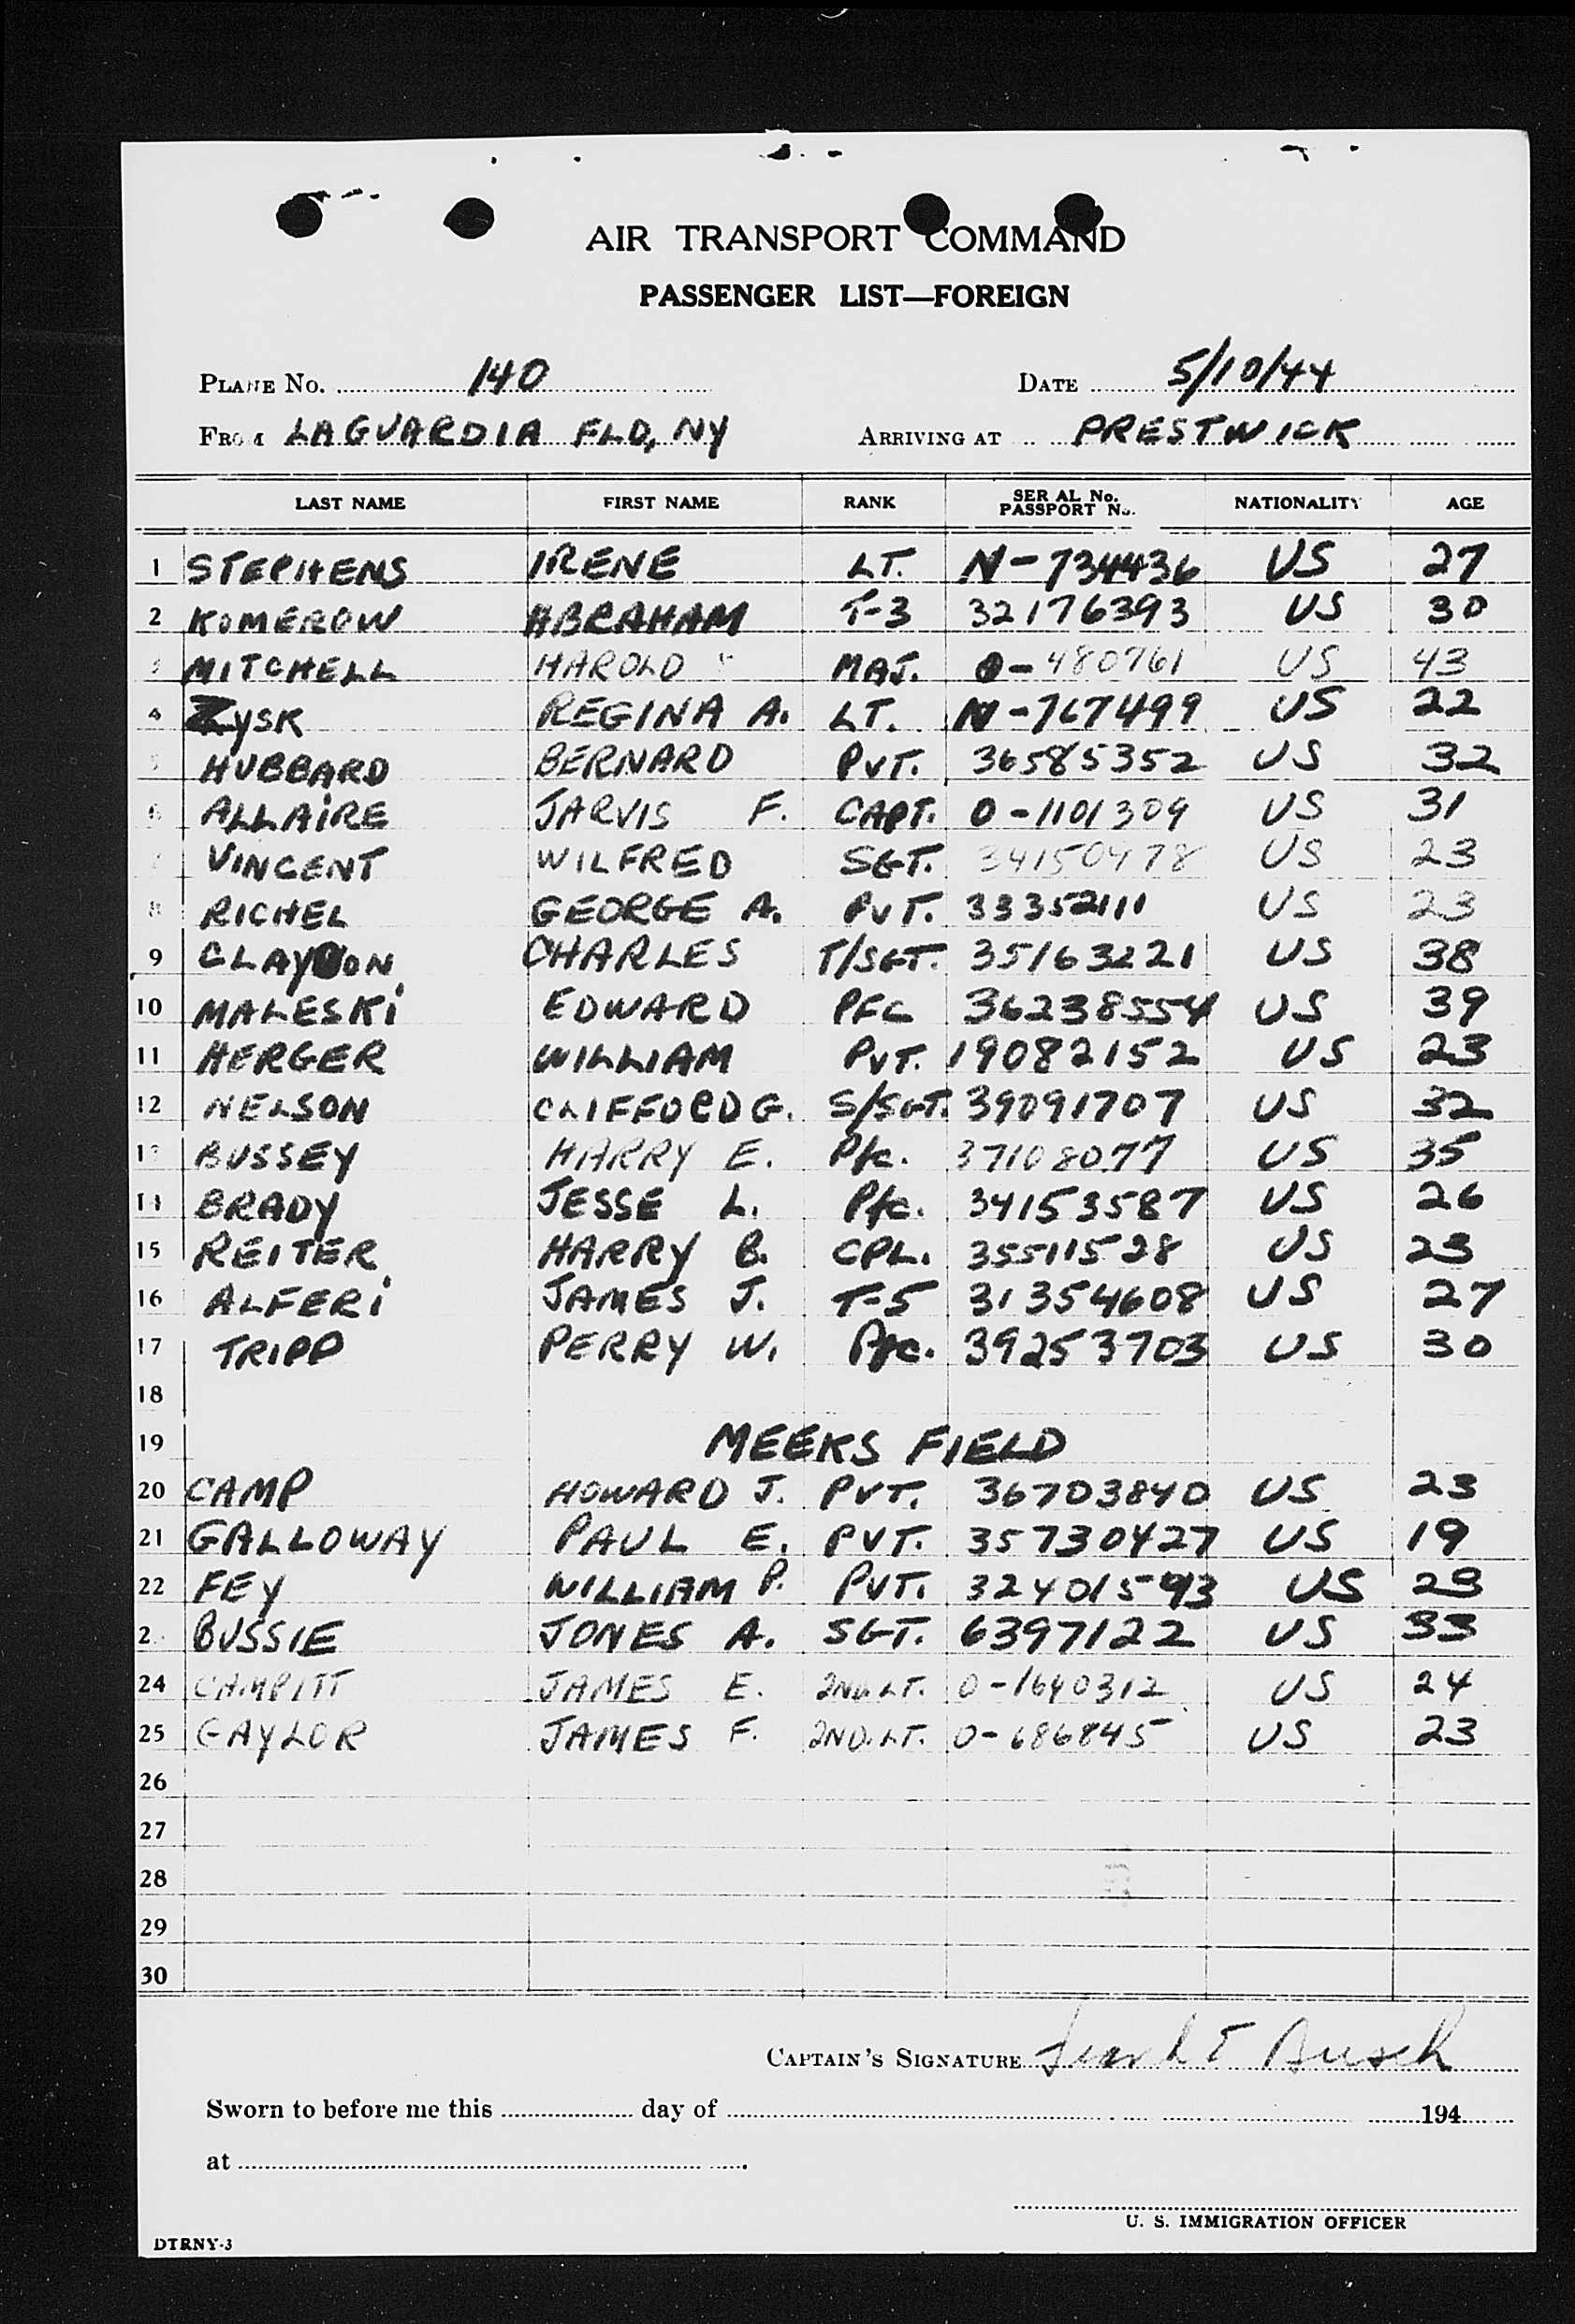 AIR TRANSPORT COMMAND
PASSENGER LIST—FOREIGN
PLANE No. 140 DATE 5/10/44
FROM LAGUARDIA FLD, NY ARRIVING AT PRESTWICK
LAST NAME FIRST NAME RANK SERIAL No. PASSPORT No. NATIONALITY AGE
1 STEPHENS IRENE LT. N-734436 US 27
2 KOMEROW ABRAHAM T-3 32176393 US 30
3 MITCHELL HAROLD MAJ. O-480761 US 43
4 ZYSK REGINA A. LT. N-767499 US 22
5 HUBBARD BERNARD PVT. 36585352 US 32
6 ALLAIRE JARVIS F. CAPT. O-1101309 US 31
7 VINCENT WILFRED SGT. 34150478 US 23
8 RICHEL GEORGE A. PVT. 33352111 US 23
9 CHARLES T/SGT. 35163221 US 38
10 MALESKI EDWARD PFC 36238554 US 39
11 HERGER WILLIAM PVT. 19082152 US 23
12 NELSON CLIFFORD G. S/SGT. 39091707 US 32
13 BUSSEY HARRY E. Pfc. 37108077 US 35
14 BRADY JESSE L. Pfc. 34153587 US 26
15 REITER HARRY B. CPL. 35511528 US 23
16 ALFERI JAMES J. T-5 31354608 US 27
17 TRIPP PERRY W. Pfc. 39253703 US 30
18
19 MEEKS FIELD
20 CAMP HOWARD J. PVT. 36703840 US 23
21 GALLOWAY PAUL E. PVT. 35730427 US 19
22 FEY WILLIAM P. PVT. US 23
23 BUSSIE JONES A. SGT. 6397122 US 33
24 CAMPITT JAMES E. 2ND LT. O-1640312 US 24
25 GAYLOR JAMES F. 2ND. LT. O-686845 US 23
26
27
28
29
30
CAPTAIN'S SIGNATURE Busch
Sworn to before me this day of 194
at
U. S. IMMIGRATION OFFICER
DTRNY-3